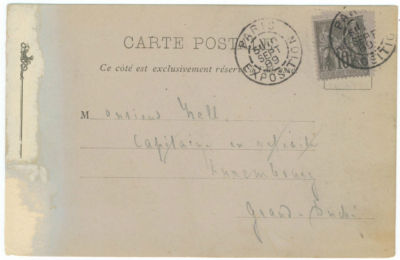 CARTE POST
Ce côté est exclusivement réserv
PARIS
SEPT
89
EXPOSITION
PARIS
SEPT
10
Monsieur Nell.
Capitaine en retraite
Luxembourg
Grand-Duché